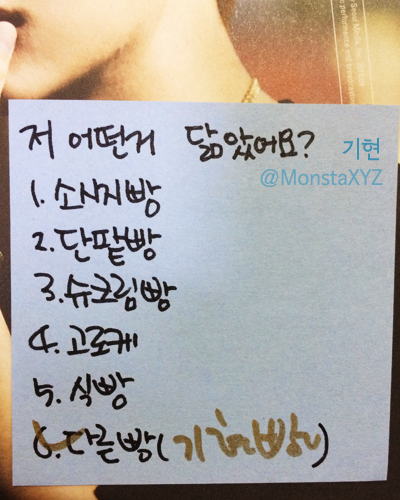 저 어떤거 닮았어요?
기현
@MonstaXYZ
1. 소시지빵
2. 단팥빵
3. 슈크림빵
4. 고로케
5. 식빵
6. 다른빵(기현빵)